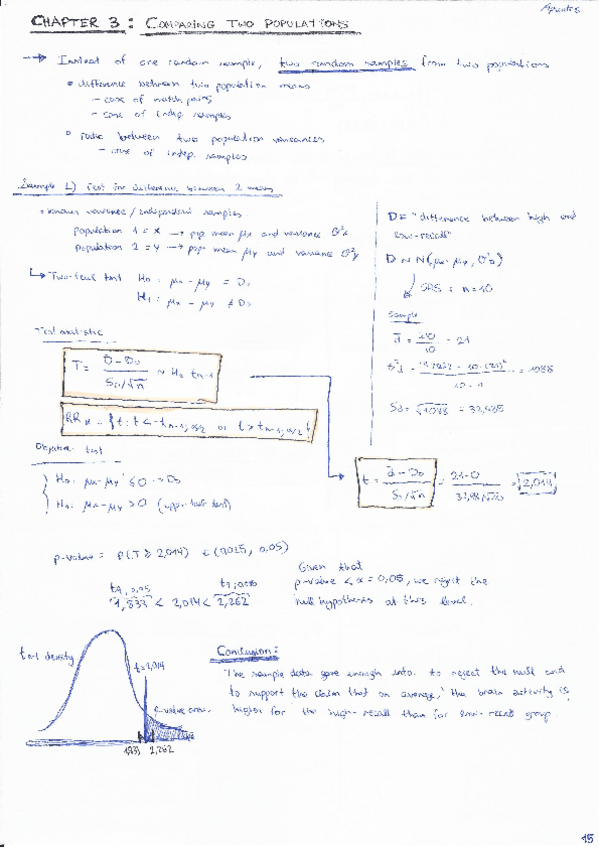 Apuntes
CHAPTER 3: COMPARING TWO POPULATIONS
→ Instead of one random sample, two random samples from two populations
• difference between two population means
- case of match pairs
- case of indep. samples
• ratio between two population variances
- case of indep. samples
Example 1) Test for difference between 2 means
• known variance / independent samples
population 1 = X → pop. mean μx and variance σ²x
population 2 = Y → pop. mean μy and variance σ²y
↳ Two-tail test H₀: μx - μy = D₀
H₁: μx - μy ≠ D₀
D = "difference between high and
low-recall"
D ~ N(μx - μy, σ²D)
SRS: n=10
Sample
d̄ = 210/10 = 21
= 1088
Sd = √1088 = 32,985
Test statistic
T = (D̄ - D₀)/(SD/√n) ~ H₀ tn-1
RRα = {t: t < -tn-1, α/2 or t > tn-1, α/2}
t = (d̄ - D₀)/(SD/√n) = (21-0)/(32,98/√10) = 2,014
test
H₀: μx - μy ≤ 0 → D₀
H₁: μx - μy > 0 (upper-tail test)
p-value = P(T ≥ 2,014) ∈ (0,025, 0,05)
t9, 0,05 t9, 0,025
1,833 < 2,014 < 2,262
Given that
p-value < α = 0,05, we reject the
null hypothesis at this level.
tn-1 density
t=2,014
p-value area
1,833 2,262
Conclusion:
"The sample data gave enough info. to reject the null and
to support the claim that on average, the brain activity is
higher for the high-recall than for low-recall group.
15